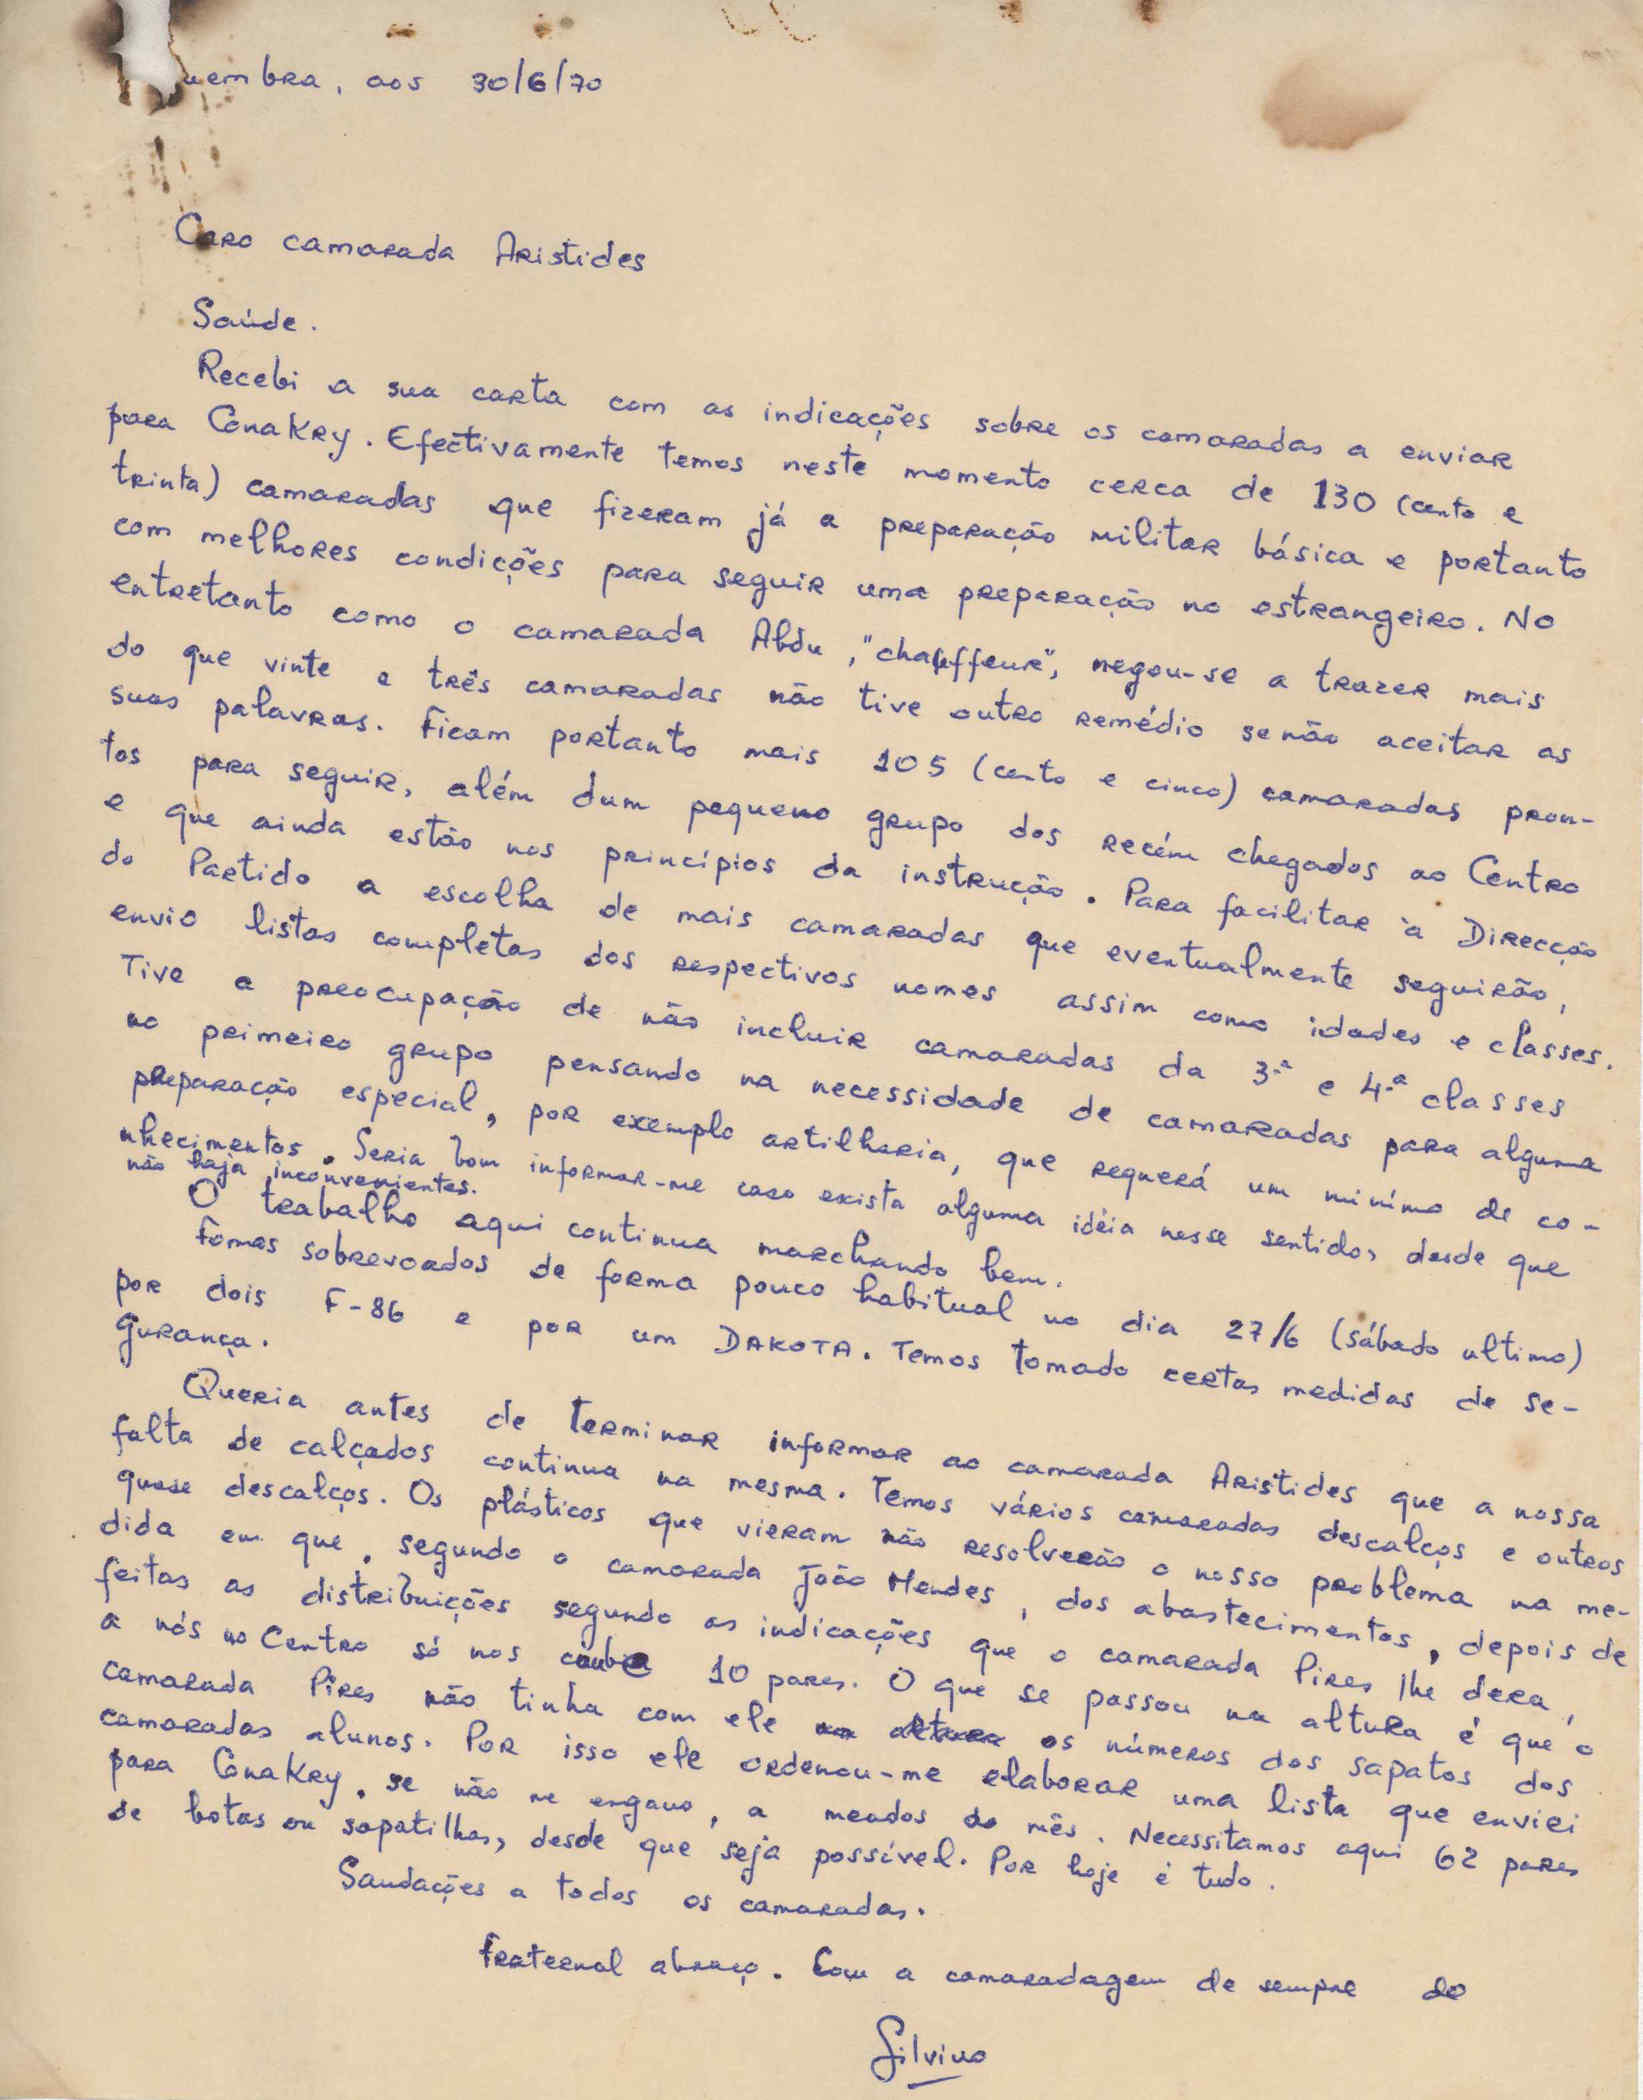 uembra, aos 30/6/70
Caro camarada Aristides
Saúde.
Recebi a sua carta com as indicações sobre os camaradas a enviar
para Conakry. Efectivamente temos neste momento cerca de 130 (cento e
trinta) camaradas que fizeram já a preparação militar básica e portanto
com melhores condições para seguir uma preparação no estrangeiro. No
entretanto como o camarada Abdu, "chauffeur", negou-se a trazer mais
do que vinte e três camaradas não tive outro remédio senão aceitar as
suas palavras. Ficam portanto mais 105 (cento e cinco) camaradas pron-
tos para seguir, além dum pequeno grupo dos recém chegados ao Centro
e que ainda estão nos princípios da instrução. Para facilitar à Direcção
do Partido a escolha de mais camaradas que eventualmente seguirão,
envio listas completas dos respectivos nomes assim como idades e classes.
Tive a preocupação de não incluir camaradas da 3.ª e 4.ª classes
no primeiro grupo pensando na necessidade de camaradas para alguma
preparação especial, por exemplo artilharia, que requerá um mínimo de co-
nhecimentos. Seria bom informar-me caso exista alguma idéia nesse sentido, desde que
não haja inconvenientes.
O trabalho aqui continua marchando bem.
Fomos sobrevoados de forma pouco habitual no dia 27/6 (sábado ultimo)
por dois F-86 e por um DAKOTA. Temos tomado certas medidas de se-
gurança.
Queria antes de terminar informar ao camarada Aristides que a nossa
falta de calçados continua na mesma. Temos vários camaradas descalços e outros
quase descalços. Os plásticos que vieram não resolverão o nosso problema na me-
dida em que, segundo o camarada João Mendes, dos abastecimentos, depois de
feitas as distribuições segundo as indicações que o camarada Pires lhe dera,
a nós no Centro só nos coube 10 pares. O que se passou na altura é que o
camarada Pires não tinha com ele na altura os números dos sapatos dos
camaradas alunos. Por isso ele ordenou-me elaborar uma lista que enviei
para Conakry, se não me engano, a meados do mês. Necessitamos aqui 62 pares
de botas ou sapatilhas, desde que seja possível. Por hoje é tudo.
Saudações a todos os camaradas.
Fraternal abraço. Com a camaradagem de sempre do
Silvino